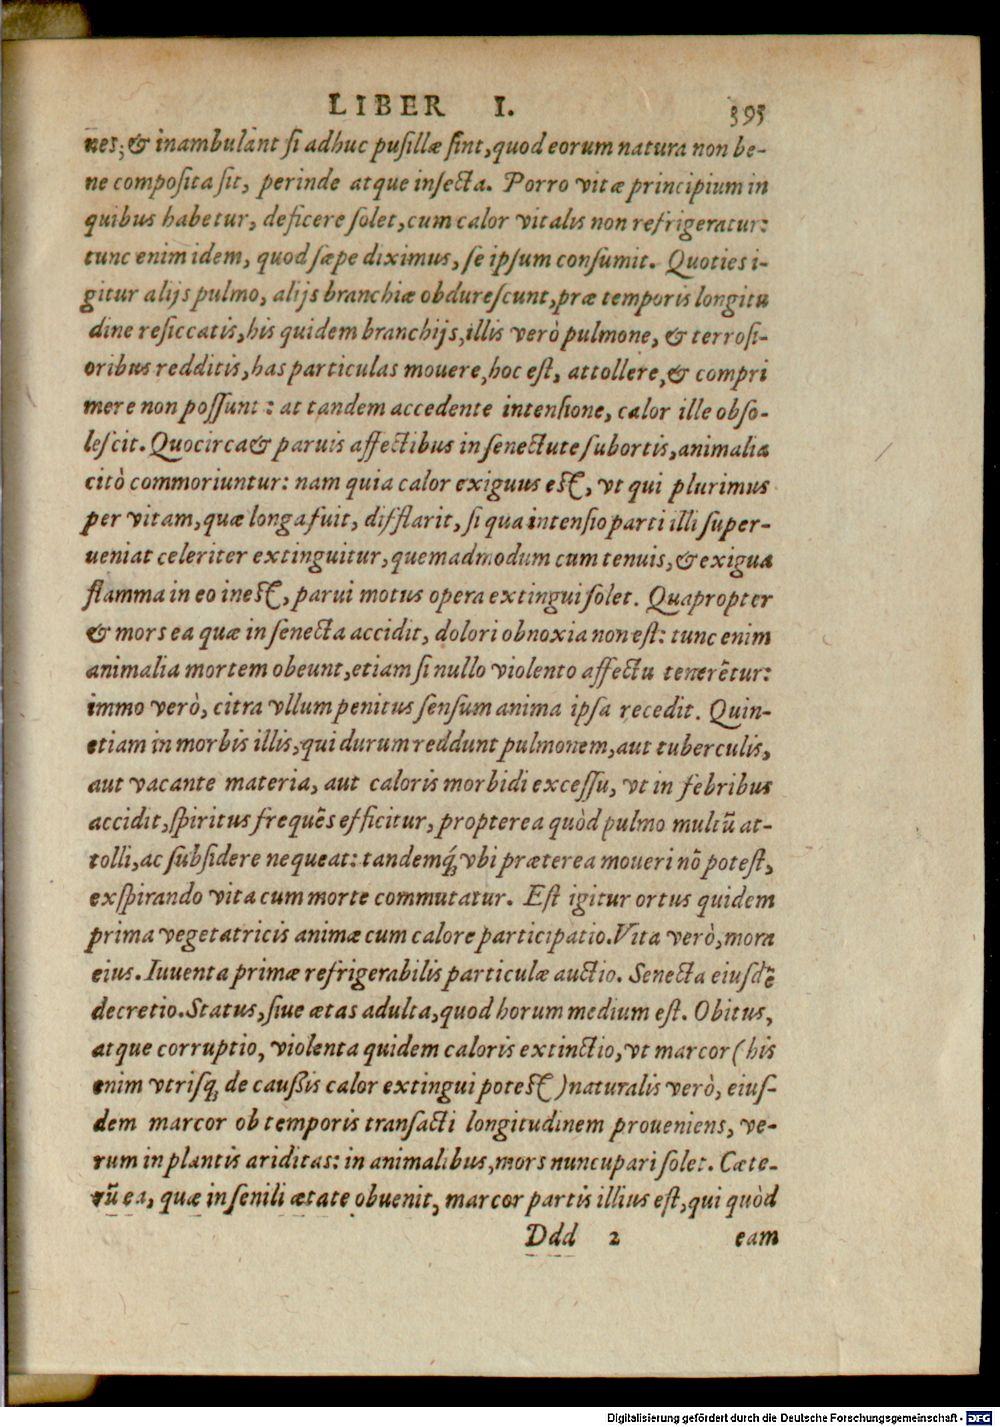 LIBER I. 395
nes; & inambulant si adhuc pusillæ sint, quod eorum natura non be-
ne composita sit, perinde atque insecta. Porro vitæ principium in
quibus habetur, deficere solet, cum calor vitalis non refrigeratur:
tunc enim idem, quod sæpe diximus, se ipsum consumit. Quoties i-
gitur alijs pulmo, alijs branchiæ obdurescunt, præ temporis longitu
dine resiccatis, his quidem branchijs, illis verò pulmone, & terrosi-
oribus redditis, has particulas mouere, hoc est, attollere, & compri
mere non possunt: at tandem accedente intensione, calor ille obso-
lescit. Quocirca & paruis affectibus in senectute subortis, animalia
citò commoriuntur: nam quia calor exiguus est, vt qui plurimus
per vitam, quæ longa fuit, difflarit, si qua intensio parti illi super-
ueniat celeriter extinguitur, quemadmodum cum tenuis, & exigua
flamma in eo inest, parui motus opera extingui solet. Quapropter
& mors ea quæ in senecta accidit, dolori obnoxia non est: tunc enim
animalia mortem obeunt, etiam si nullo violento affectu tenerẽtur:
immo verò, citra vllum penitus sensum anima ipsa recedit. Quin-
etiam in morbis illis, qui durum reddunt pulmonem, aut tuberculis,
aut vacante materia, aut caloris morbidi excessu, vt in febribus
accidit, spiritus frequẽs efficitur, propterea quòd pulmo multũ at-
tolli, ac subsidere nequeat: tandemq́; vbi præterea moueri nõ potest,
exspirando vita cum morte commutatur. Est igitur ortus quidem
prima vegetatricis animæ cum calore participatio. Vita verò, mora
eius. Iuuenta primæ refrigerabilis particulæ auctio. Senecta eiusdẽ
decretio. Status, siue ætas adulta, quod horum medium est. Obitus,
atque corruptio, violenta quidem caloris extinctio, vt marcor (his
enim vtrisq; de caußis calor extingui potest) naturalis verò, eius-
dem marcor ob temporis transacti longitudinem proueniens, ve-
rum in plantis ariditas: in animalibus, mors nuncupari solet. Cæte-
rũ ea, quæ in senili ætate obuenit, marcor partis illius est, qui quòd
Ddd 2 eam
Digitalisierung gefördert durch die Deutsche Forschungsgemeinschaft - DFG